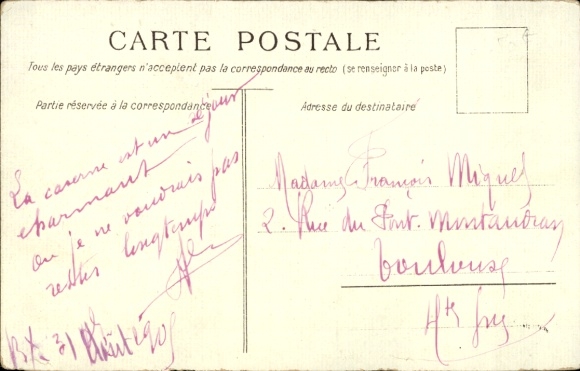 CARTE POSTALE
Tous les pays étrangers n'acceptent pas la correspondance au recto (se renseigner à la poste)
Partie réservée à la correspondance
Adresse du destinataire
La caserne est un séjour
charmant
où je ne voudrais pas
rester longtemps
31 Août 1905
Madame François Miquel
2. Rue du Pont. Montaudran
Toulouse
Hte